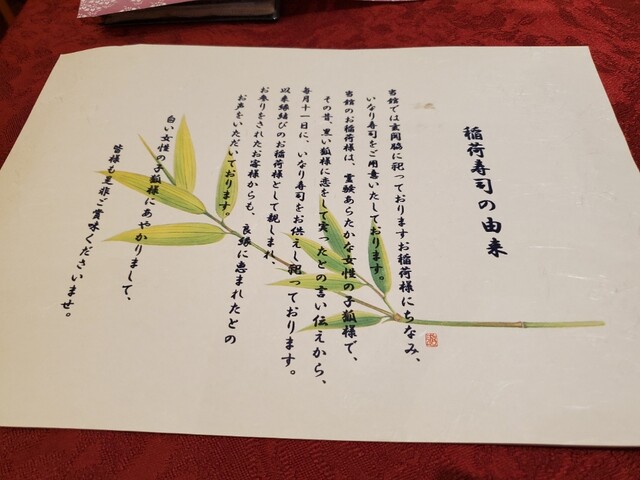 稲荷寿司の由来
当館では玄関脇に祀っておりますお稲荷様にちなみ、
いなり寿司をご用意いたしております。
当館のお稲荷様は、霊験あらたかな女性の子狐様で、
その昔、黒い狐様に恋をして実ったとの言い伝えから、
毎月十一日に、いなり寿司をお供えし祀っております。
以来縁結びのお稲荷様として親しまれ、
お参りをされたお客様からも、良縁に恵まれたとの
お声をいただいております。
白い女性の子狐様にあやかりまして、
皆様も是非ご賞味くださいませ。